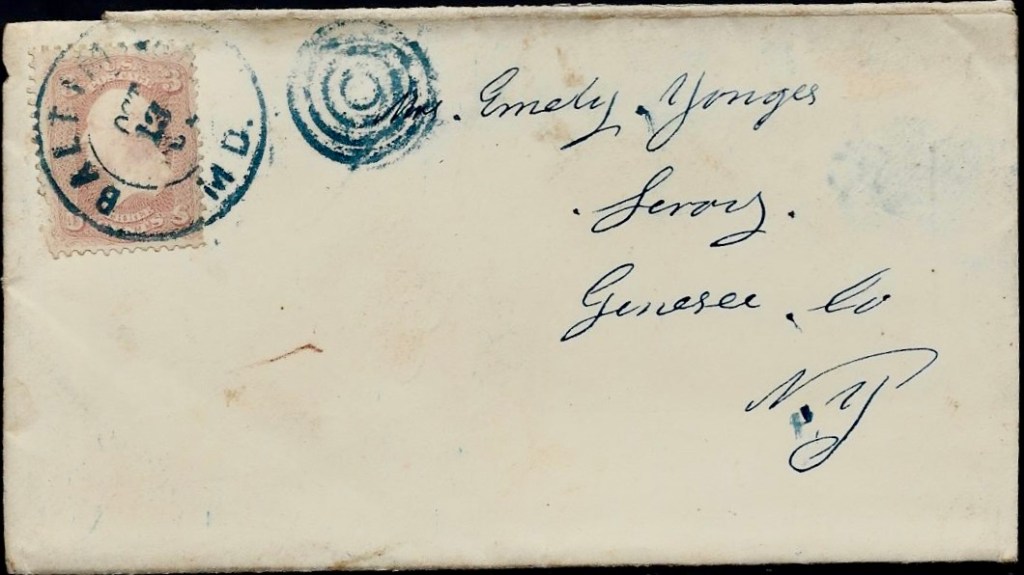 BALTIM MD.
Mrs. Emely. Yonges
Leroy.
Genesee. Co
N. Y